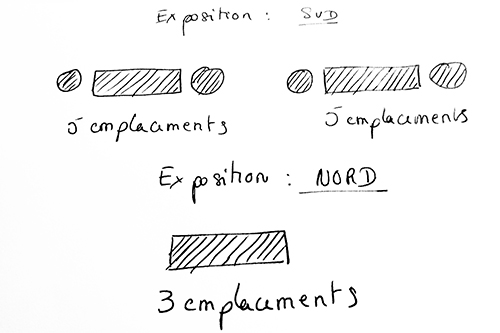 Exposition : SUD
5 emplacements
5 emplacements
Exposition : NORD
3 emplacements